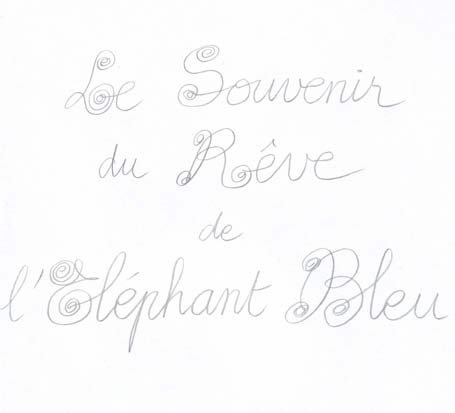 Le Souvenir
du Rêve
de
l'Eléphant Bleu